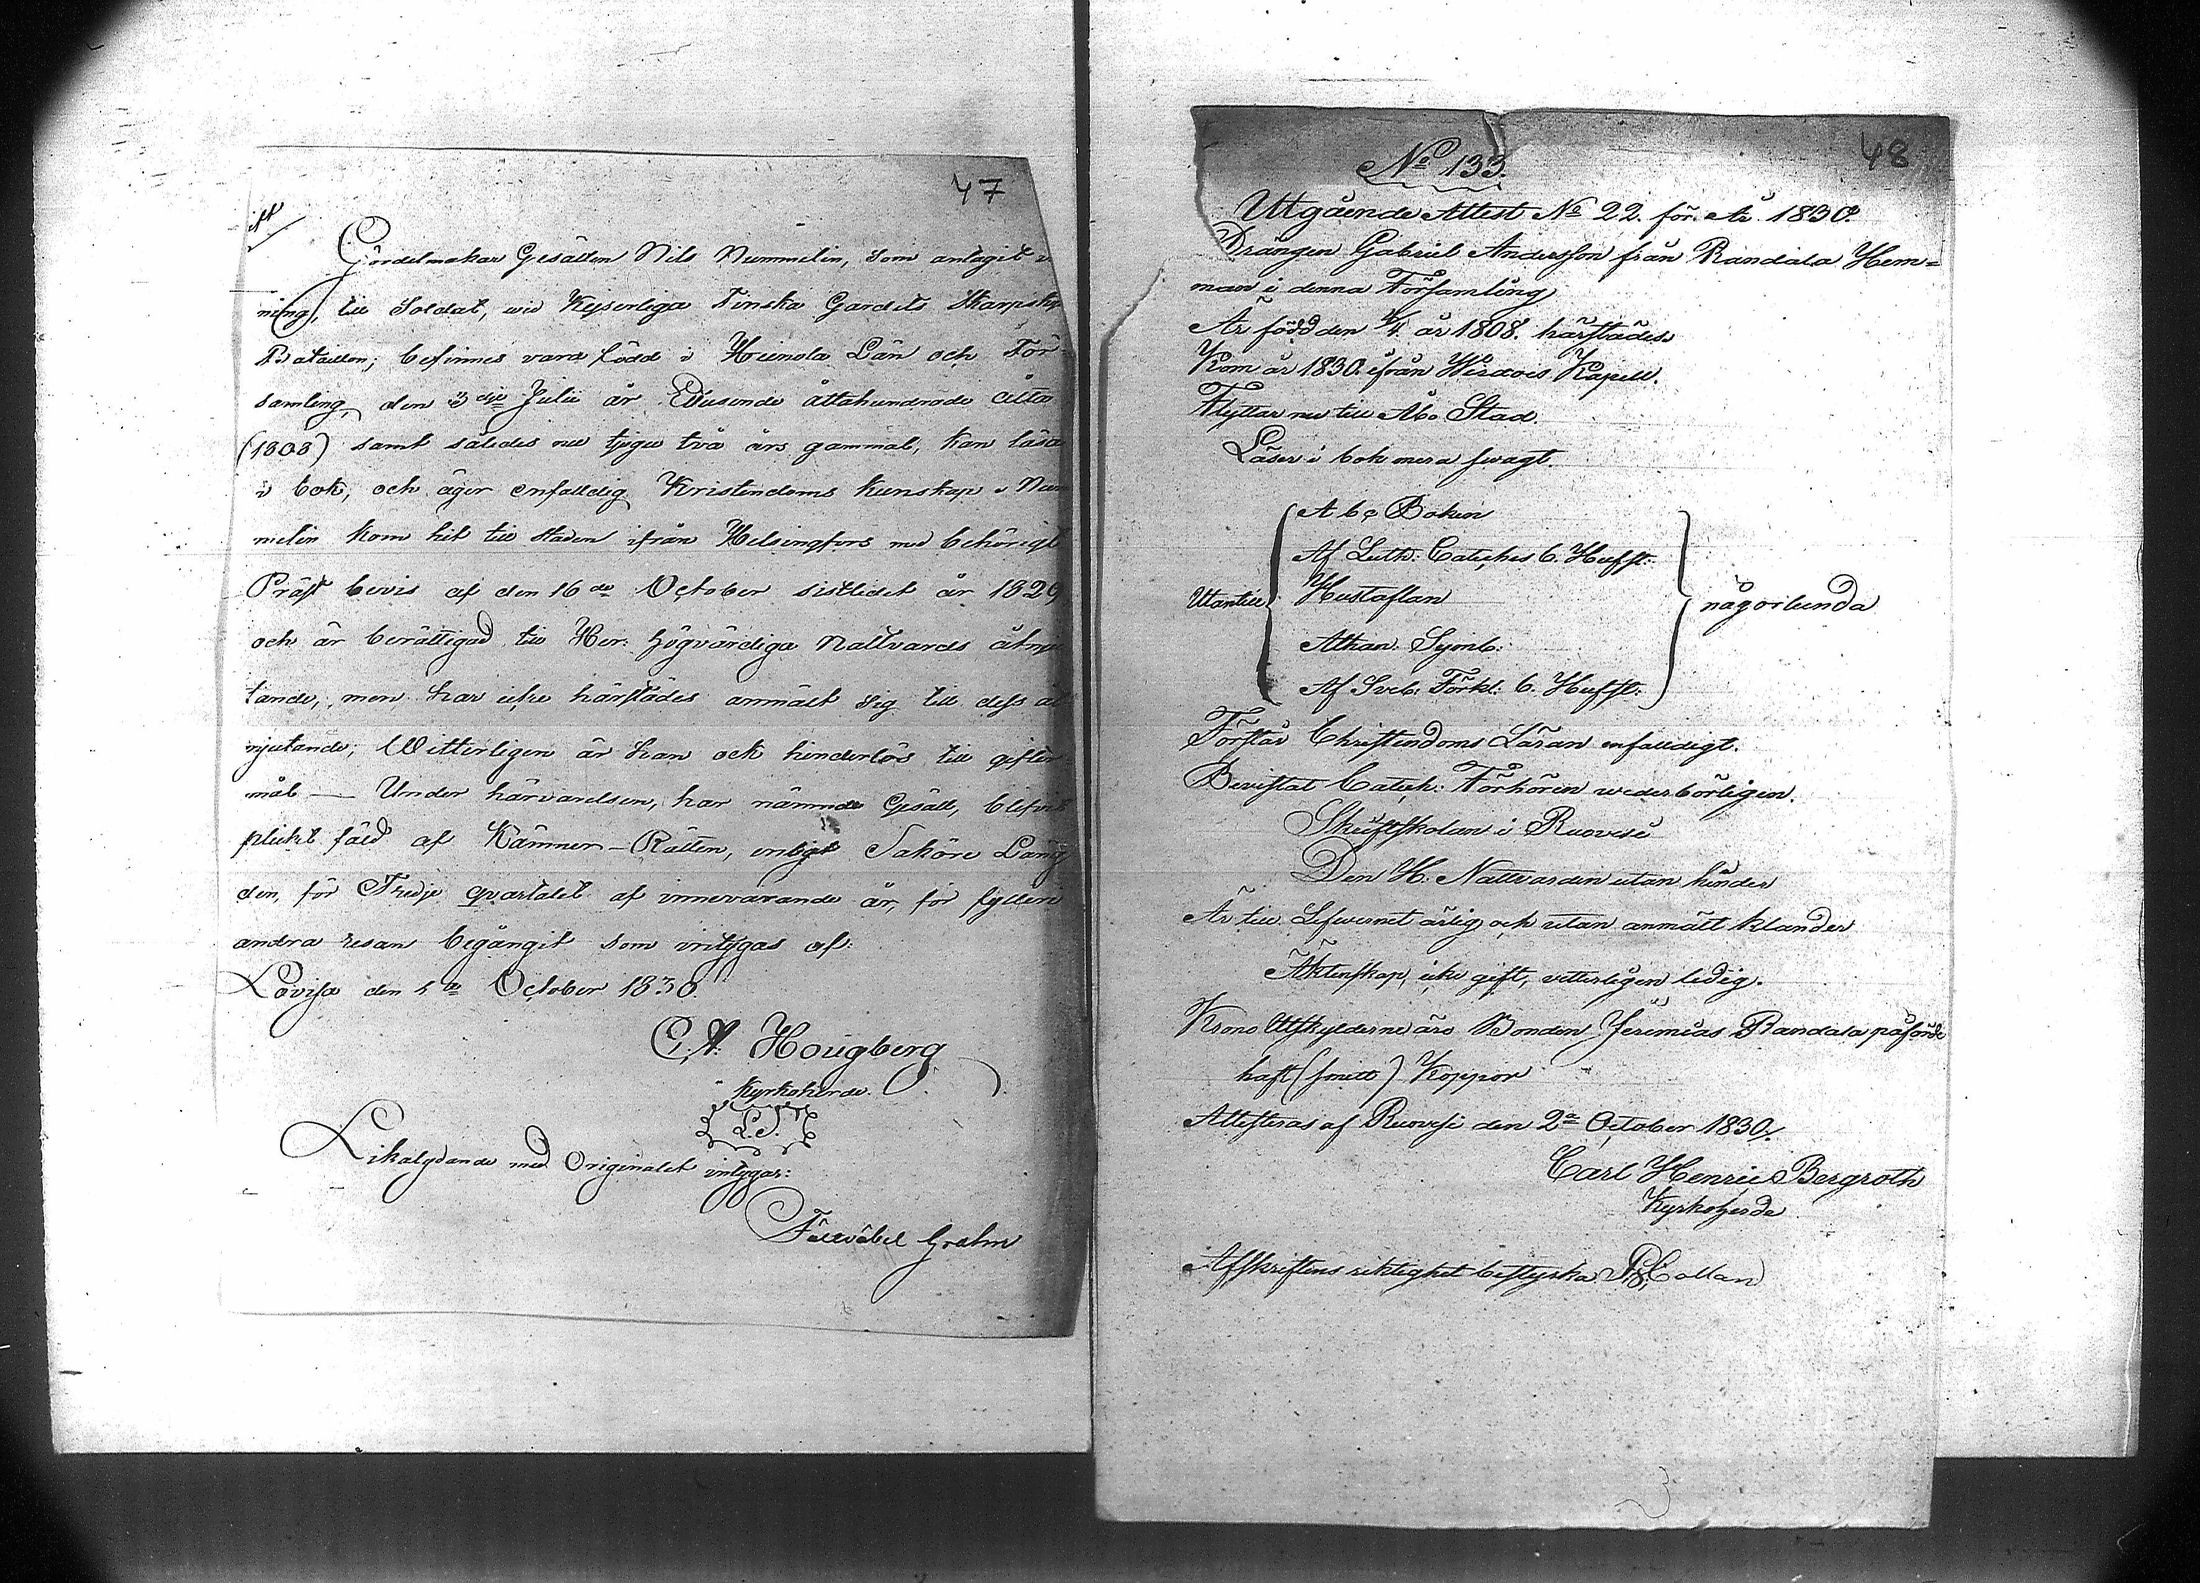 47
Gördelmakar Gesällen Nils Nummelin, som antagit v
ning, till Soldat, wid Kejserliga Finska Gardets Skarpsky
Bataillon; befinnes vara född i Heinola Län och För-
samling, den 3dje Julii år Ettusende åttahundrade åtta
(1808) samt således nu tjugu två års gammal, kan läsa
i bok, och äger enfalldig Kristendoms kunskap; Num
melin kom hit till staden ifrån Helsingfors med behörigt
Präst bevis af den 16de October sistledit år 1829
och är berättigad till Her: högvärdiga Nattvards åtnju
tande, men har icke härstädes anmält sig till dess åt
njutande; Witterligen är han ock hinderlös till gifter
mål — Under härvarelsen, har nämnde Gesäll, blifvit
plickt fäld af Kämner-Rätten, enligt Saköre Läng
den, för Tredje qvartalet af innevarande år, för fylleri
andra resan begångit som intygas af:
Lovisa den 5te October 1830.
C. A. Hougberg
Kyrkoherde.
L.S.
Likalydande med Originalet intygar:
Fältväbel Grahn
48
No 133.
Utgående Attest No 22. för År 1830.
Drängen Gabriel Andersson från Randala Hem=
man i denna Församling
Är född den 4/4 år 1808. härstädes
Kom år 1830. ifrån Wirdois Kapell.
Flyttar nu till Åbo Stad.
Läser i bok mera swagt.
Utantill
A b c Boken
Af Luth: Cateches 6. Hufst:
Hustaflan
Athan. Symb:
Af Sveb: Förkl: 6. Hufst:
någorlunda
Förstår Christendoms Läran enfalldigt.
Bevistat Catech: Förhören wederbörligen.
Skriftskolan i Ruovesi
Den H. Nattvarden utan hinder
Är till Lefwernet ärlig och utan anmält klander
Äktenskap, icke gift, vetterligen ledig.
Krono Utskylderne äro Bonden Jeremias Randala påförde
haft (smitt) Koppor
Attesteras af Ruovesi den 2a October 1830.
Carl Henric Bergroth
Kyrkoherde
Afskriftens riktighet bestyrka Collan